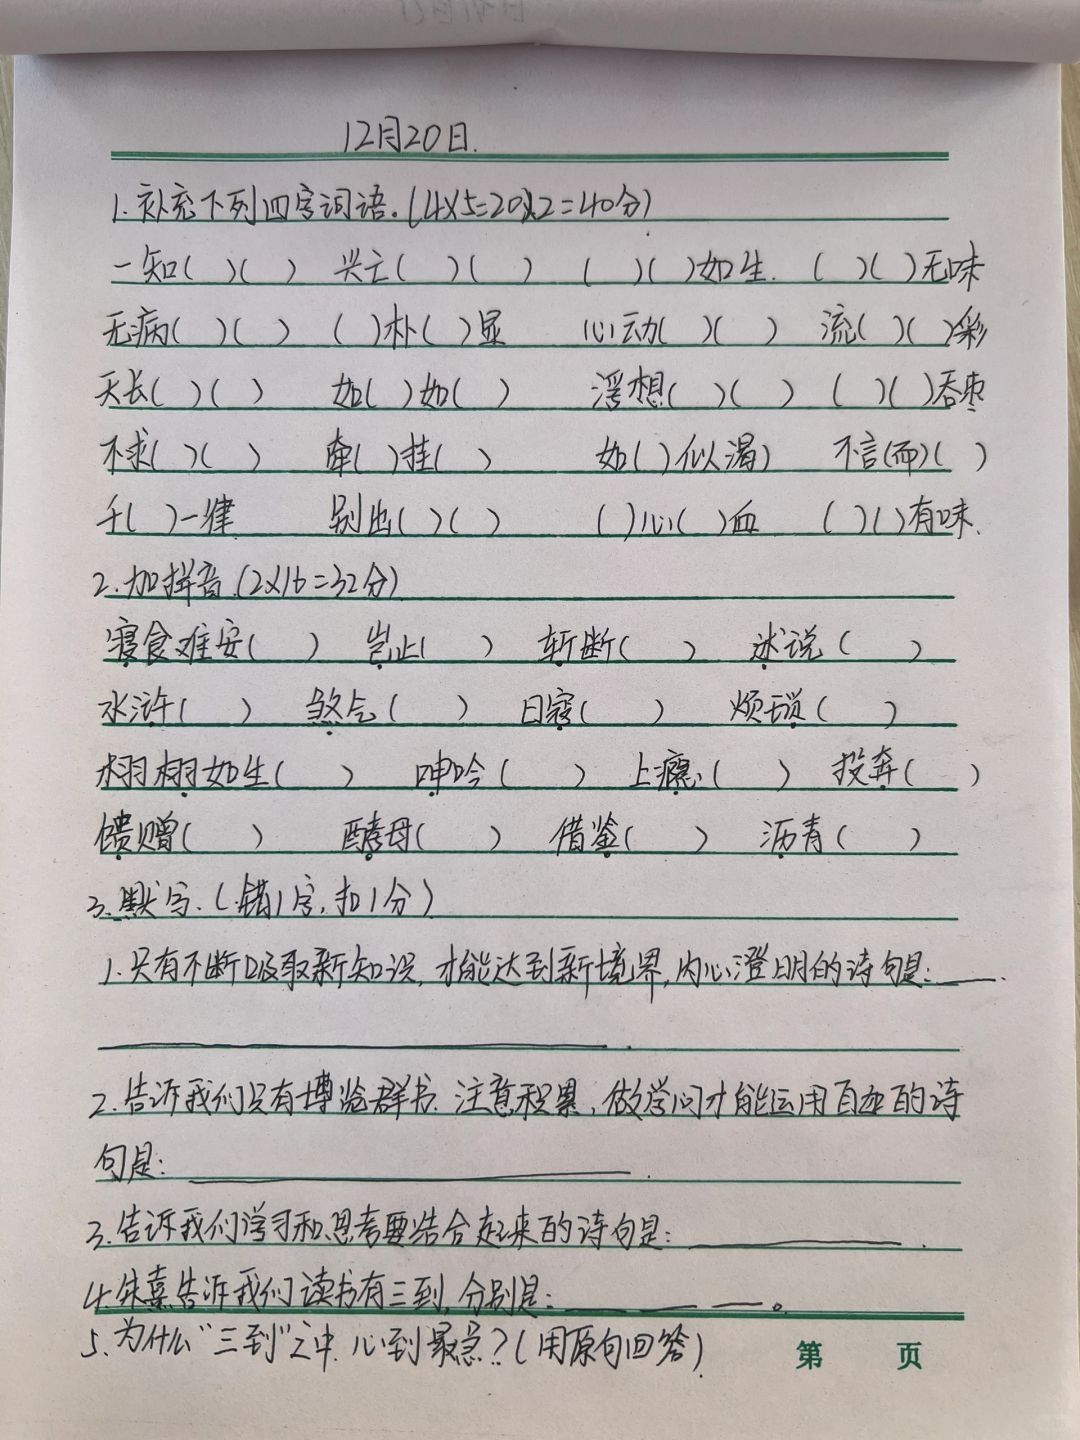 12月20日.
1.补充下列四字词语.(4×5=20)×2=40分)
一知( )( ) 兴亡( )( ) ( )( )如生. ( )( )无味
无病( )( ) ( )朴( )显 心动( )( ) 流( )( )彩
天长( )( ) 如( )如( ) 浮想( )( ) ( )( )吞枣
不求( )( ) 牵( )挂( ) 如( )似渴) 不言(而)( )
千( )一律 别出( )( ) ( )心( )血 ( )( )有味.
2.加拼音.(2×16=32分)
寝食难安( ) 岂止( ) 斩断( ) 述说( )
水浒( ) 煞气( ) 日寇( ) 烦琐( )
栩栩如生( ) 呻吟( ) 上瘾( ) 投奔( )
馈赠( ) 酵母( ) 借鉴( ) 沥青( )
3.默写.(错1字,扣1分)
1.只有不断吸取新知识,才能达到新境界,内心澄明的诗句是:____.
____.
2.告诉我们只有博览群书.注意积累,做学问才能运用自如的诗
句是:____.
3.告诉我们学习和思考要结合起来的诗句是:____.
4.朱熹告诉我们读书有三到,分别是:__ __ __。
5.为什么"三到"之中.心到最急?(用原句回答)
第 页